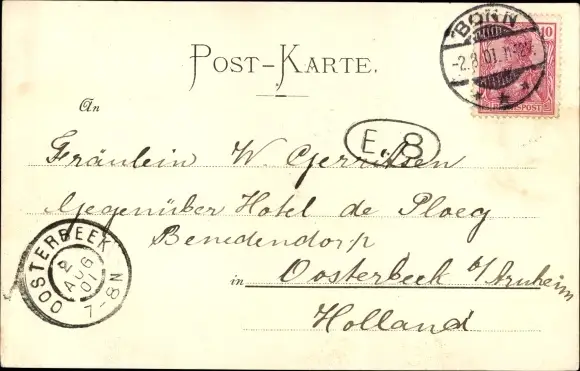 BONN
-2.8.01. 11-12V.
10
REICHSPOST
POST-KARTE.
An
E. 8
Fräulein W. Gerritsen
Gegenüber Hotel de Ploeg
Benedendorp
in Oosterbeek b/Arnheim
Holland
OOSTERBEEK
2 AUG 01
7-8N